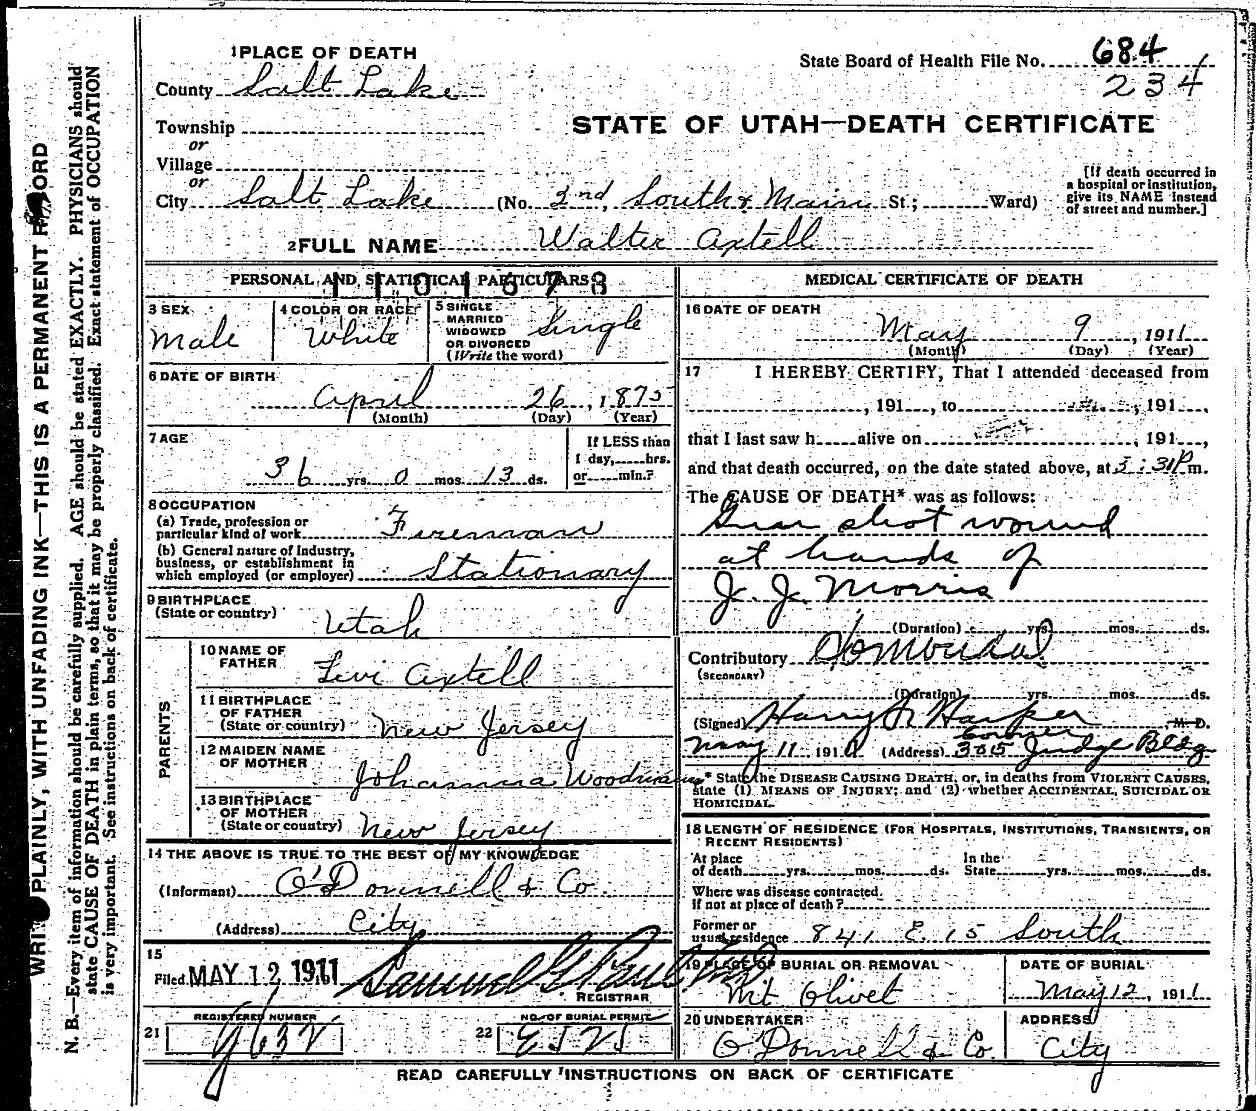 WRITE PLAINLY, WITH UNFADING INK—THIS IS A PERMANENT RECORD
N. B.—Every item of information should be carefully supplied. AGE should be stated EXACTLY. PHYSICIANS should
state CAUSE OF DEATH in plain terms, so that it may be properly classified. Exact statement of OCCUPATION
is very important. See instructions on back of certificate.
1 PLACE OF DEATH
State Board of Health File No. 684
234
County Salt Lake
STATE OF UTAH—DEATH CERTIFICATE
Township
or
Village
or
City Salt Lake (No. 2nd South & Main St; Ward)
[If death occurred in
a hospital or institution,
give its NAME instead
of street and number.]
2 FULL NAME Walter Axtell
PERSONAL AND STATISTICAL PARTICULARS
3 SEX
Male
4 COLOR OR RACE
White
5 SINGLE
MARRIED
WIDOWED
OR DIVORCED
(Write the word)
Single
6 DATE OF BIRTH
April 26, 1875
(Month) (Day) (Year)
7 AGE
36 yrs. 0 mos. 13 ds.
If LESS than
1 day, hrs.
or min.?
8 OCCUPATION
(a) Trade, profession or
particular kind of work Fireman
(b) General nature of Industry,
business, or establishment in
which employed (or employer) Stationary
9 BIRTHPLACE
(State or country) Utah
PARENTS
10 NAME OF
FATHER Levi Axtell
11 BIRTHPLACE
OF FATHER
(State or country) New Jersey
12 MAIDEN NAME
OF MOTHER Johanna
13 BIRTHPLACE
OF MOTHER
(State or country) New Jersey
14 THE ABOVE IS TRUE TO THE BEST OF MY KNOWLEDGE
(Informant) O'Donnell & Co.
(Address) City
15
Filed MAY 12 1911 Samuel G. Paul
REGISTRAR
REGISTERED NUMBER
21
NO. OF BURIAL PERMIT
22
MEDICAL CERTIFICATE OF DEATH
16 DATE OF DEATH
May 9, 1911
(Month) (Day) (Year)
17 I HEREBY CERTIFY, That I attended deceased from
, 191 , to , 191 ,
that I last saw h alive on , 191 ,
and that death occurred, on the date stated above, at m.
The CAUSE OF DEATH* was as follows:
Gun shot wound
at hands of
J. J. Morris
(Duration) yrs. mos. ds.
Contributory Homicidal
(SECONDARY)
(Duration) yrs. mos. ds.
(Signed) Harry Harper M. D.
Coroner
May 11 191 (Address) 305 Judge Bldg
* State the DISEASE CAUSING DEATH, or, in deaths from VIOLENT CAUSES,
state (1) MEANS OF INJURY; and (2) whether ACCIDENTAL, SUICIDAL OR
HOMICIDAL.
18 LENGTH OF RESIDENCE (FOR HOSPITALS, INSTITUTIONS, TRANSIENTS, OR
RECENT RESIDENTS)
At place
of death yrs. mos. ds.
In the
State yrs. mos. ds.
Where was disease contracted.
if not at place of death?
Former or
usual residence 841 E. 15 South
19 PLACE OF BURIAL OR REMOVAL
Mt Olivet
DATE OF BURIAL
May 12, 1911
20 UNDERTAKER
O'Donnell & Co.
ADDRESS
City
READ CAREFULLY INSTRUCTIONS ON BACK OF CERTIFICATE